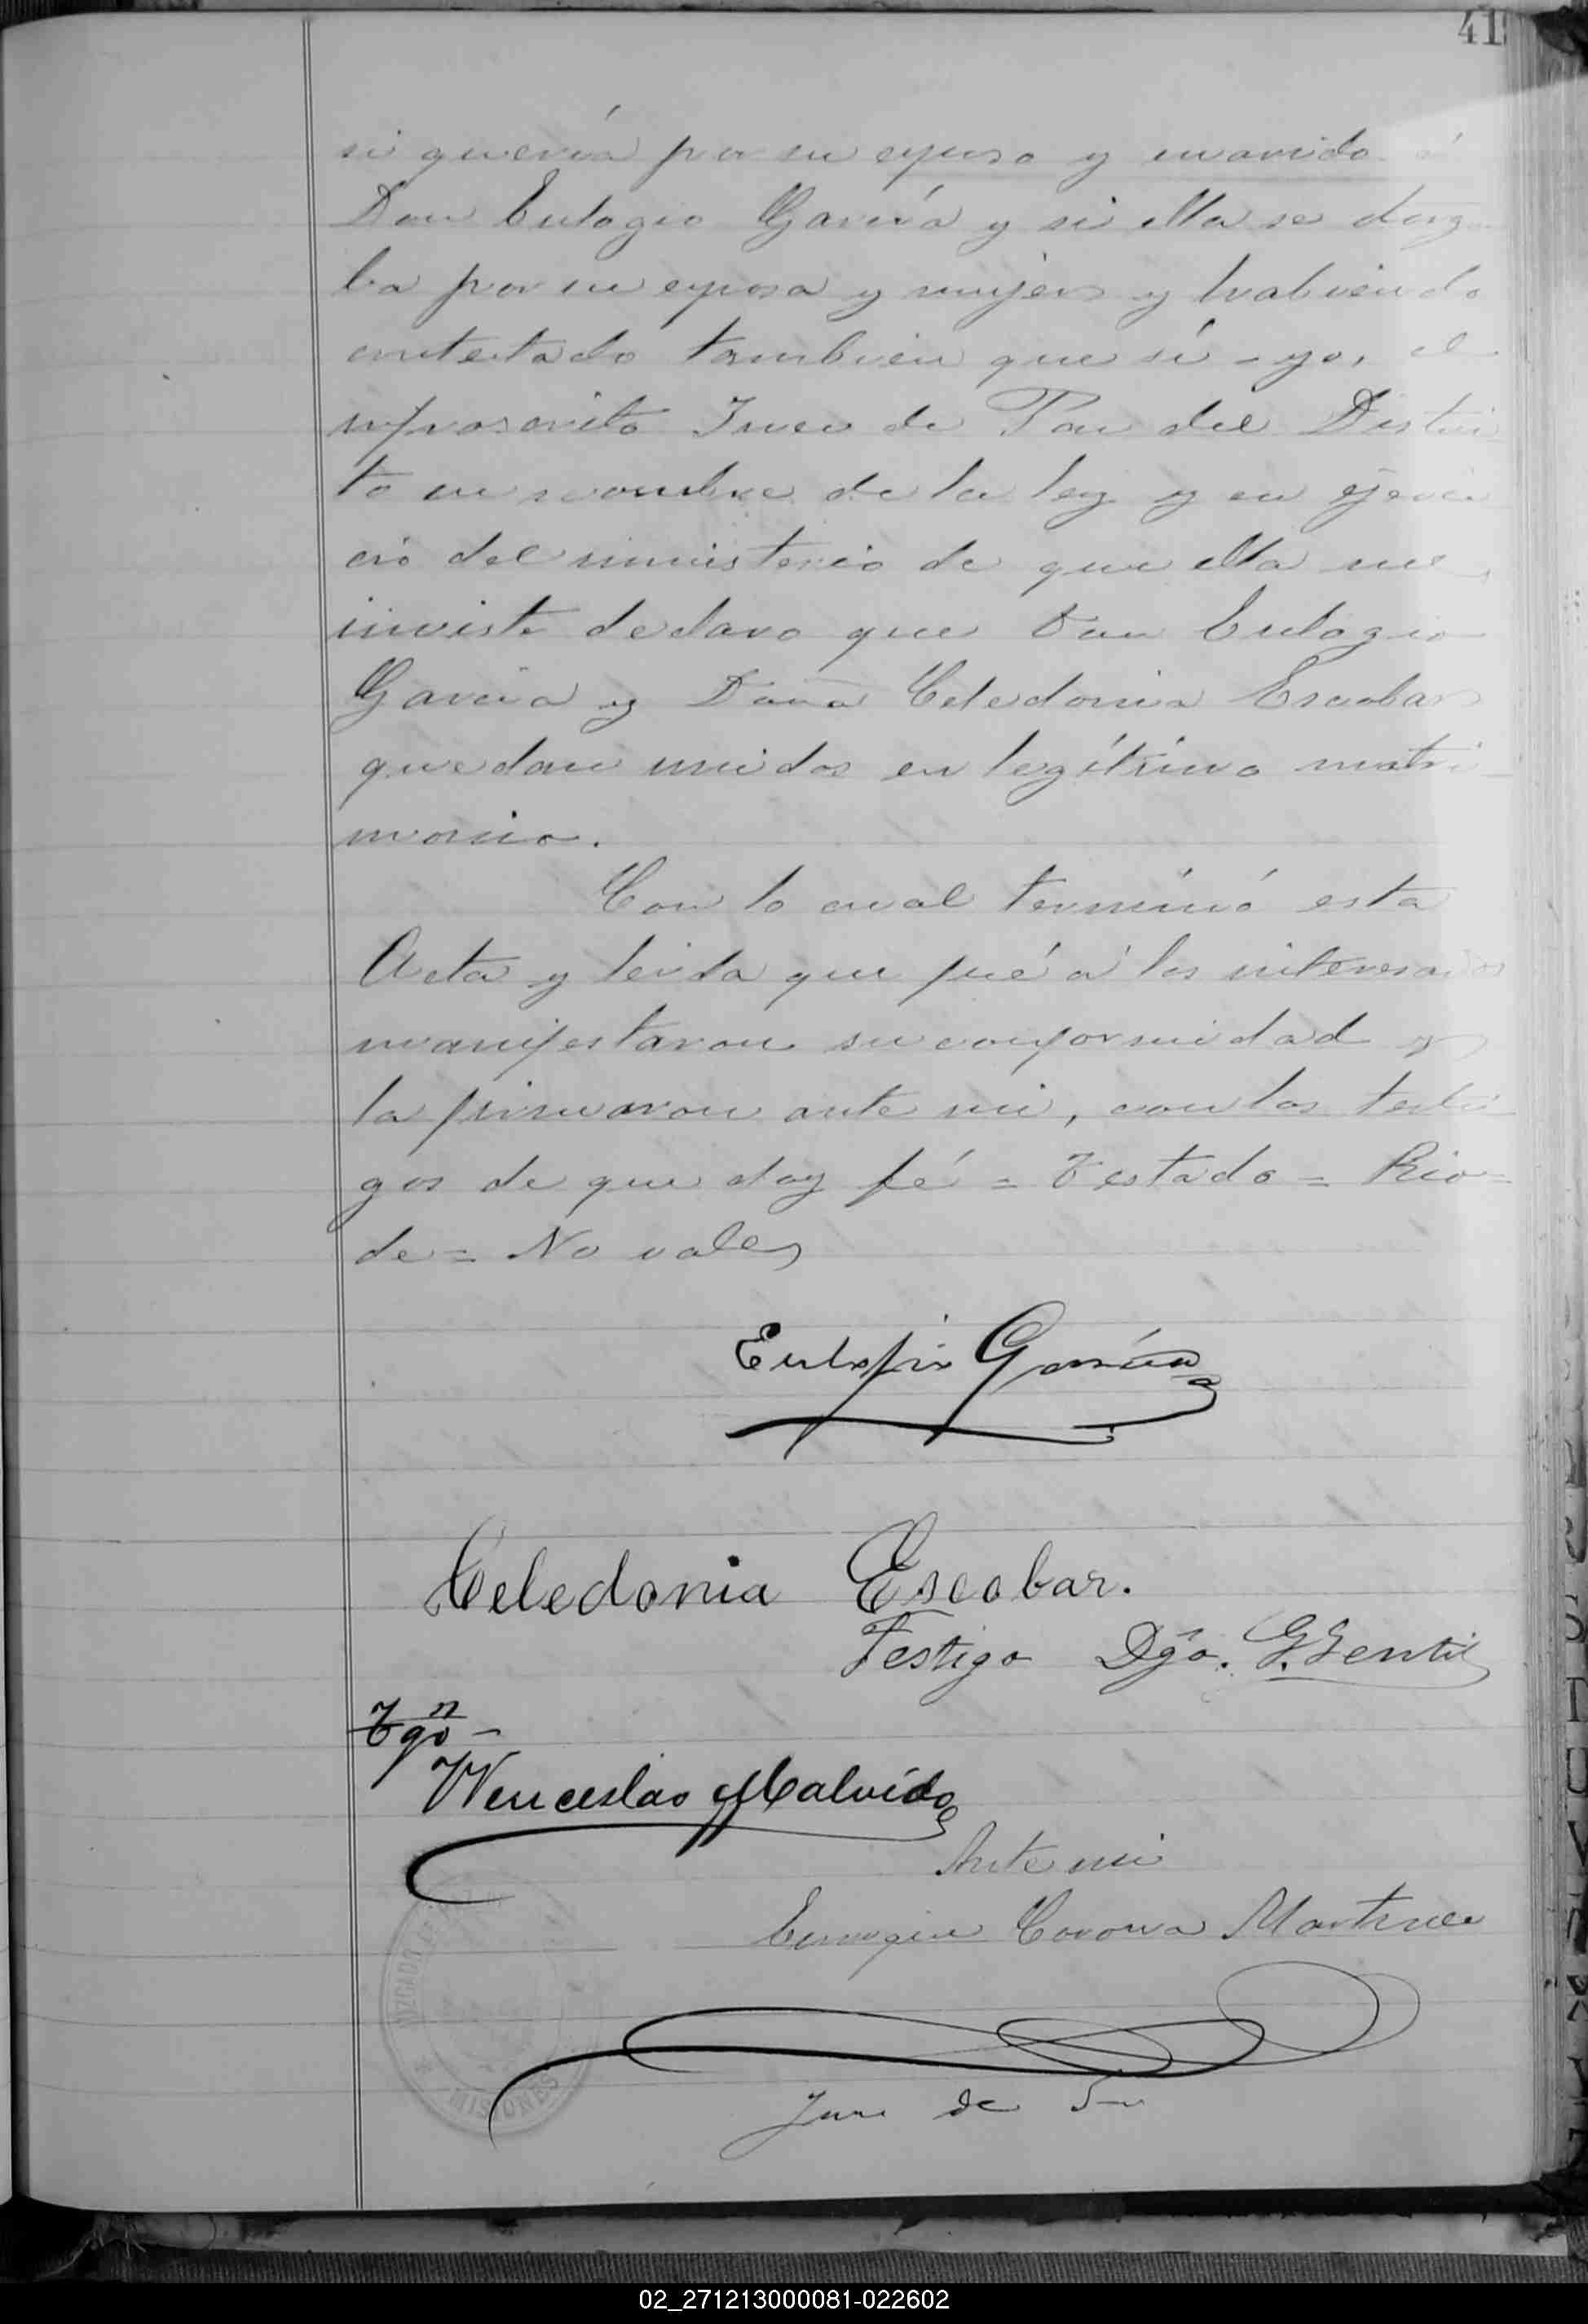 41
si quería por su esposo y marido á
Don Eulogio García y si ella se otorga
ba por su esposa y mujer y habiendo
contestado tambien que sí - yo, el
infrascrito Juez de Paz del Distri
to en nombre de la ley y en ejerci
cio del ministerio de que ella me
inviste declaro que Don Eulogio
Garcia y Doña Celedonia Escobar
quedan unidos en legítimo matri
monio.
Con lo cual terminó esta
Acta y leida que fué á los interesados
manifestaron su conformidad y
la firmaron ante mi, con los testi
gos de que doy fé = Testado = Rio =
de = No vale
Eulogio García
Celedonia Escobar.
Testigo Dgo. G. Gentil
Tgo
Wenceslao Malvido
Ante mi
Enrique Corona Martinez
JUZGADO DE
MISIONES
Juez de
02_271213000081-022602